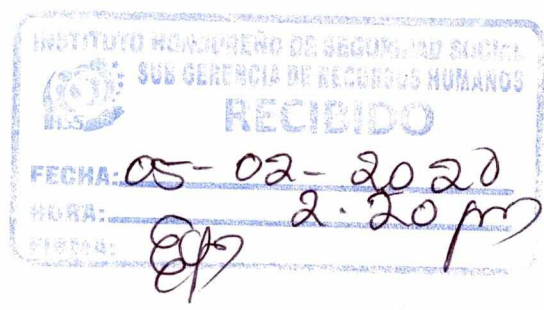 INSTITUTO HONDUREÑO DE SEGURIDAD SOCIAL
SUB GERENCIA DE RECURSOS HUMANOS
IHSS
RECIBIDO
FECHA: 05-02-2020
HORA: 2.20 pm
FIRMA: